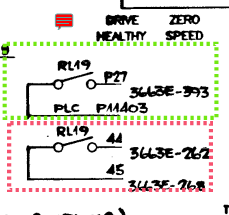 DRIVE HEALTHY
ZERO SPEED
RL19
P27
3663E-393
PLC P11403
RL19
44
3663E-262
45
3663E-268